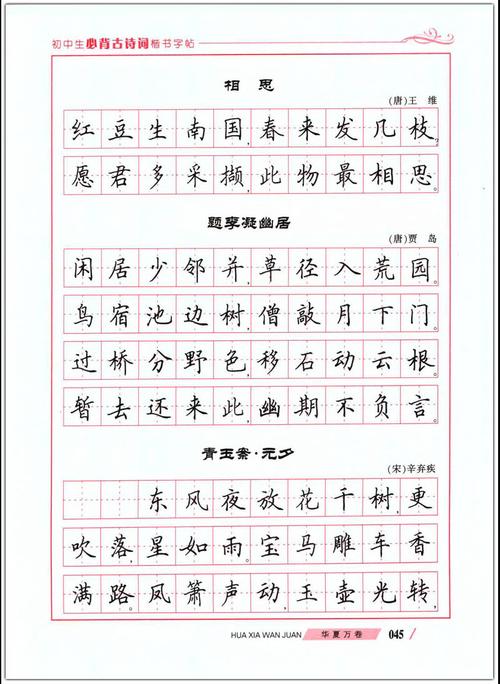 初中生必背古诗词楷书字帖
相 思
(唐)王 维
红豆生南国,春来发几枝?
愿君多采撷,此物最相思。
题李凝幽居
(唐)贾 岛
闲居少邻并,草径入荒园。
鸟宿池边树,僧敲月下门。
过桥分野色,移石动云根。
暂去还来此,幽期不负言。
青玉案·元夕
(宋)辛弃疾
东风夜放花千树,更
吹落,星如雨。宝马雕车香
满路。凤箫声动,玉壶光转,
HUA XIA WAN JUAN 华夏万卷 045